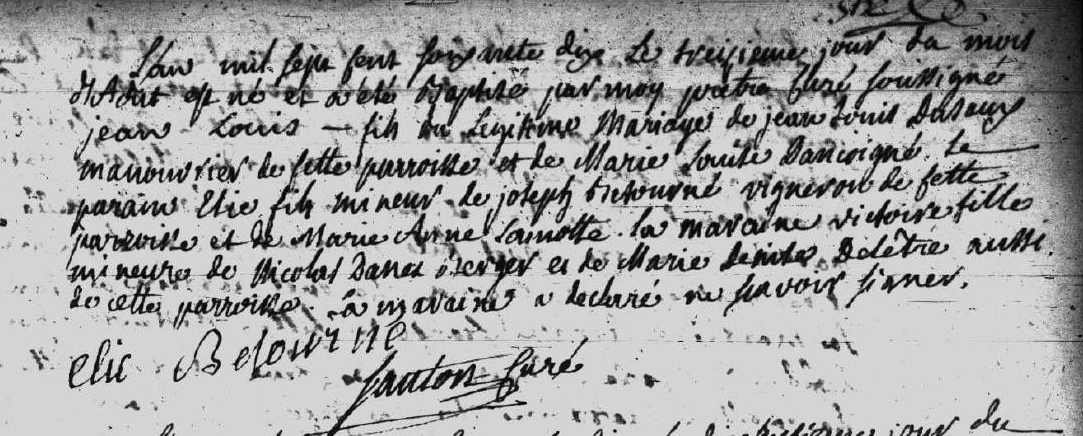 L'an mil sept cent soixante dix le treizieme jour du mois
d'Aout est né et a été Baptisé par moy pretre Curé soussigné
jean Louis — fils en Legitime Mariage de jean Louis
manouvrier de cette parroisse et de Marie
parain Elie fils mineur de joseph Betourné vigneron de cette
parroisse et de Marie Anne Lamotte. la maraine victoire fille
mineure de Nicolas Berger et de Marie aussi
de cette parroisse. La maraine a declaré ne scavoir signer.
elie Betourné
Curé
jour du